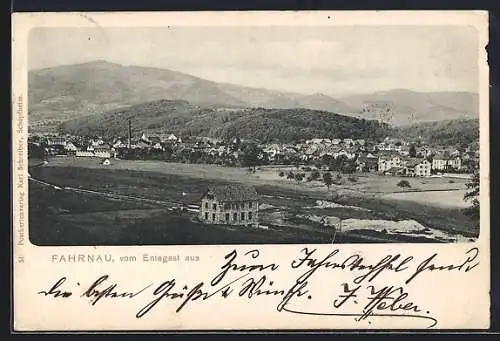 51 Postkartenverlag Karl Schreiber, Schopfheim.
FAHRNAU, vom Entegast aus
zum Jahreswechsel sendet
die besten Grüße & Wünsche J. Weber